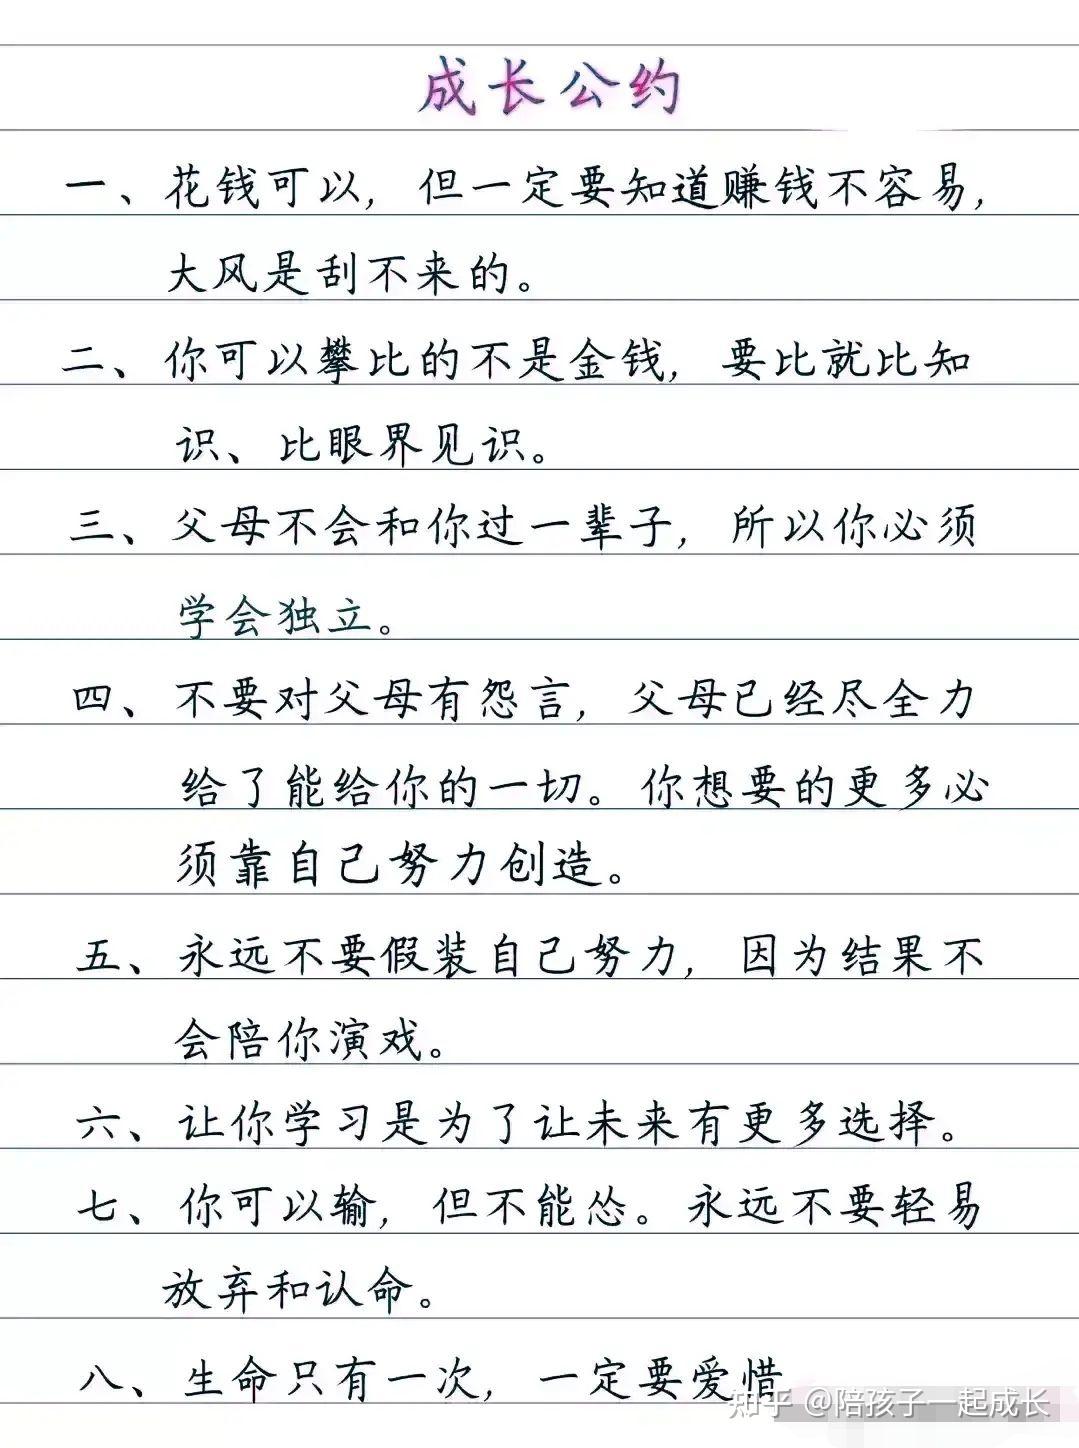 成长公约
一、花钱可以，但一定要知道赚钱不容易，
大风是刮不来的。
二、你可以攀比的不是金钱，要比就比知
识、比眼界见识。
三、父母不会和你过一辈子，所以你必须
学会独立。
四、不要对父母有怨言，父母已经尽全力
给了能给你的一切。你想要的更多必
须靠自己努力创造。
五、永远不要假装自己努力，因为结果不
会陪你演戏。
六、让你学习是为了让未来有更多选择。
七、你可以输，但不能怂。永远不要轻易
放弃和认命。
八、生命只有一次，一定要爱惜
知乎 @陪孩子一起成长